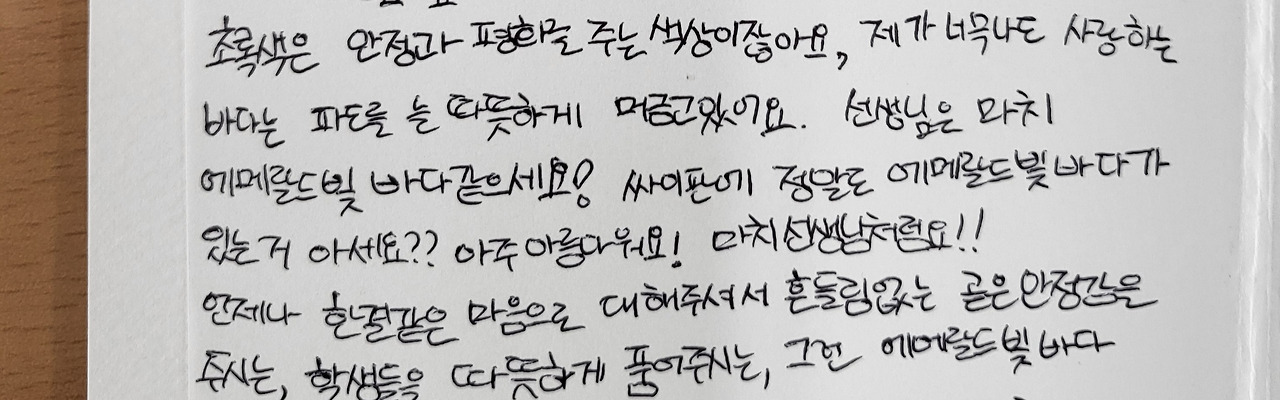 초록색은 안정과 평화를 주는 색상이잖아요, 제가 너무나도 사랑하는
바다는 파도를 늘 따뜻하게 머금고있어요. 선생님은 마치
에메랄드빛 바다같으세요! 싸이판에 정말로 에메랄드빛 바다가
있는거 아세요?? 아주 아름다워요! 마치 선생님처럼요!!
언제나 한결같은 마음으로 대해주셔서 흔들림없는 곧은 안정감을
주시는, 학생들을 따뜻하게 품어주시는, 그런 에메랄드빛 바다